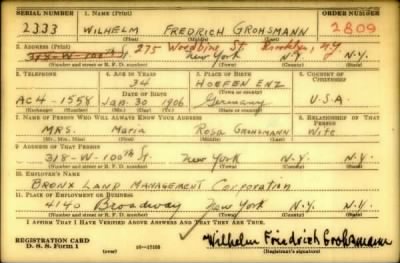 SERIAL NUMBER 1. NAME (Print) ORDER NUMBER
2333 WILHELM FREDRICH GROHSMANN 2809
(First) (Middle) (Last)
2. ADDRESS (Print) 275 Woodbine St. Brooklyn, N.Y.
318-W-100th St. New York N.Y. N.Y.
(Number and street or R. F. D. number) (Town) (County) (State)
3. TELEPHONE 4. AGE IN YEARS 5. PLACE OF BIRTH 6. COUNTRY OF CITIZENSHIP
34 HOEFEN ENZ
DATE OF BIRTH (Town or county)
AC4-1558 Jan. 30 1906 Germany U.S.A.
(Exchange) (Number) (Mo.) (Day) (Yr.) (State or country)
7. NAME OF PERSON WHO WILL ALWAYS KNOW YOUR ADDRESS 8. RELATIONSHIP OF THAT PERSON
MRS. Maria Rosa GROHSMANN Wife
(Mr., Mrs., Miss) (First) (Middle) (Last)
9. ADDRESS OF THAT PERSON
318-W-100th St. New York N.Y. N.Y.
(Number and street or R. F. D. number) (Town) (County) (State)
10. EMPLOYER'S NAME
BRONX LAND MANAGEMENT CORPORATION
11. PLACE OF EMPLOYMENT OR BUSINESS
4140 Broadway New York N.Y. N.Y.
(Number and street or R. F. D. number) (Town) (County) (State)
I AFFIRM THAT I HAVE VERIFIED ABOVE ANSWERS AND THAT THEY ARE TRUE.
REGISTRATION CARD
D. S. S. FORM 1 (over) Wilhelm Friedrich Grohsmann
(Registrant's signature)